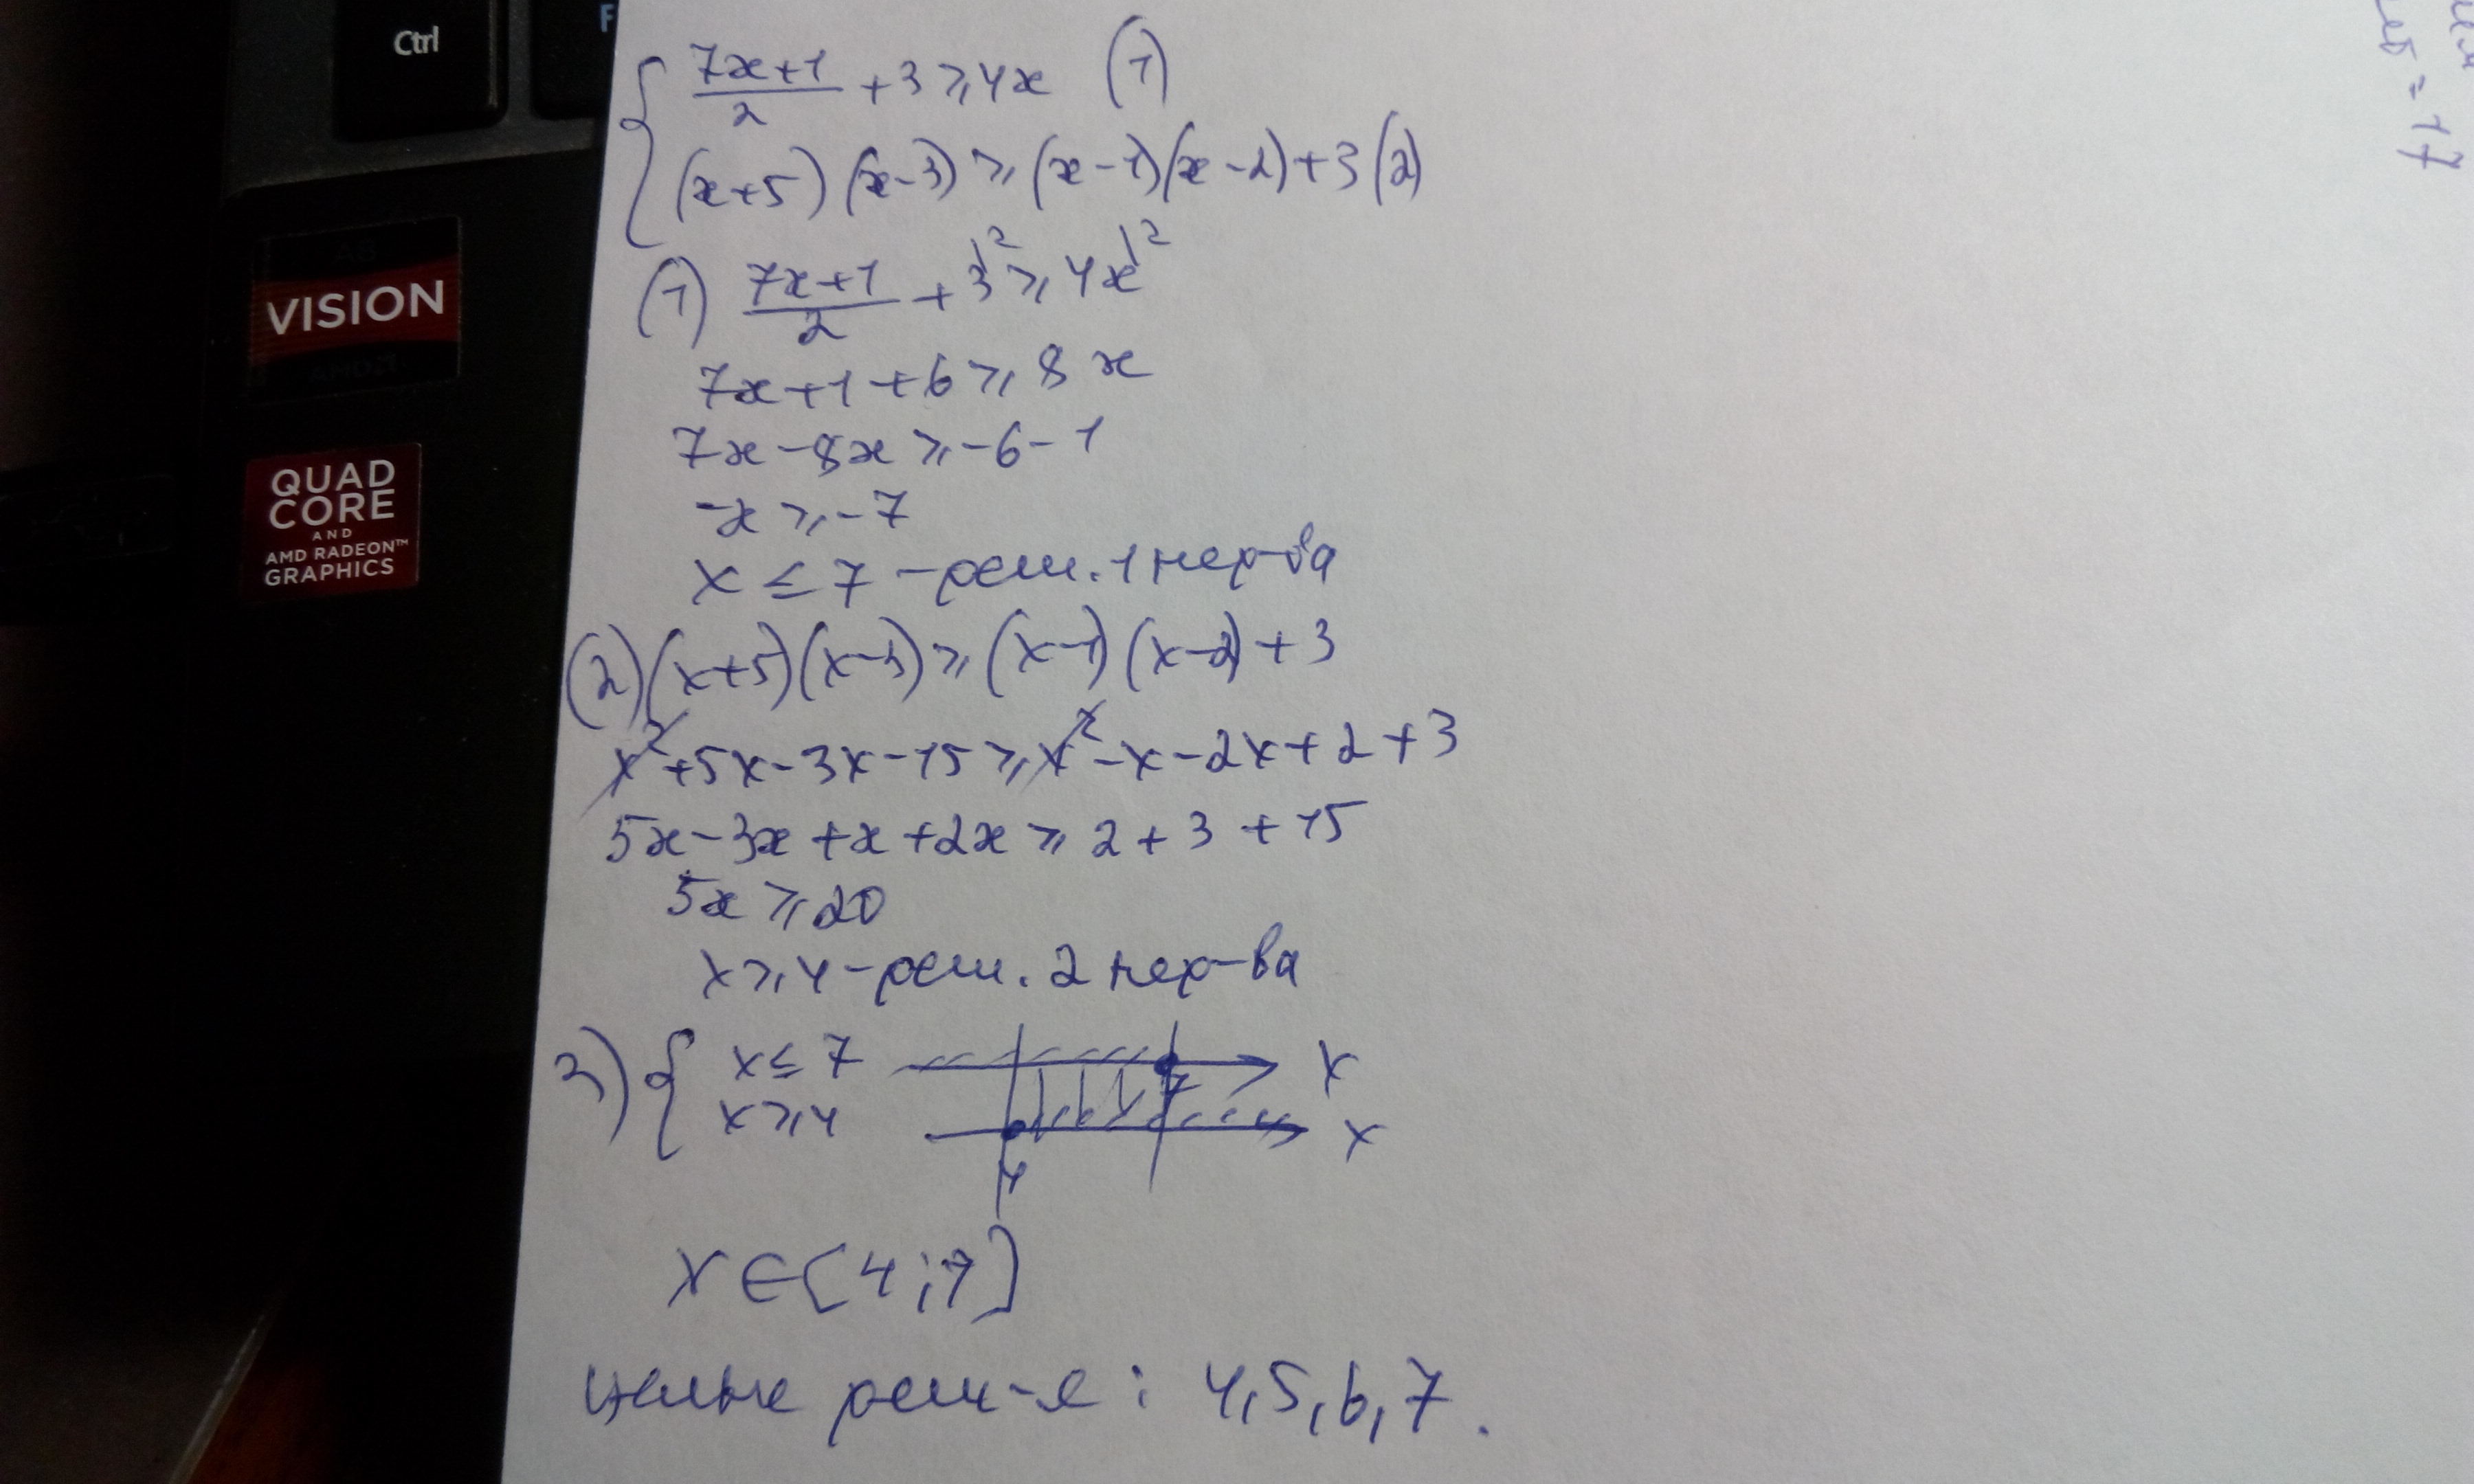 Ctrl
F
VISION
QUAD
CORE
AND
AMD RADEON™
GRAPHICS
{ (7x+1)/2 + 3 ⩾ 4x (1)
(x+5)(x-3) ⩾ (x-1)(x-2)+3 (2)
(1) (7x+1)/2 + 3\² ⩾ 4x\²
7x+1+6 ⩾ 8x
7x-8x ⩾ -6-1
-x ⩾ -7
x ≤ 7 - реш. 1 нер-ва
(2) (x+5)(x-3) ⩾ (x-1)(x-2)+3
x²+5x-3x-15 ⩾ x²-x-2x+2+3
5x-3x+x+2x ⩾ 2+3+15
5x ⩾ 20
x ⩾ 4 - реш. 2 нер-ва
3) { x ≤ 7
x ⩾ 4
7 x
4 x
x ∈ [4;7]
целые реш-я: 4,5,6,7.
= 17